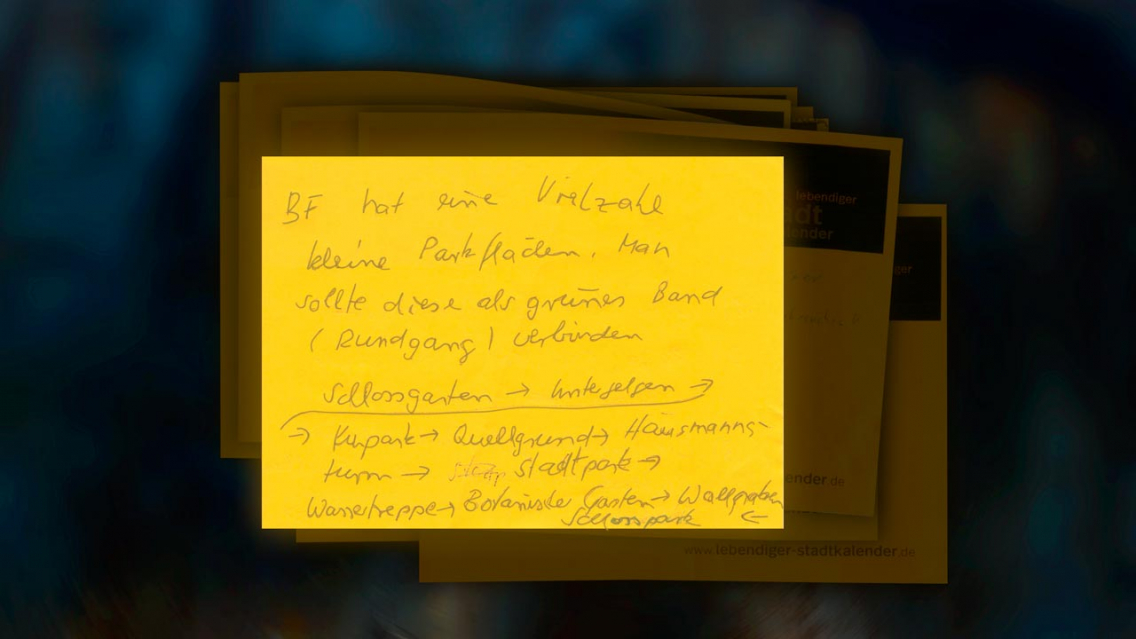 BF hat eine Vielzahl
kleine Parkflächen. Man
sollte diese als grünes Band
(Rundgang) verbinden
Schlossgarten → Untergelgen →
→ Kurpark → Quellgrund → Hausmanns-
turm → Stadtpark →
Wassertreppe → Botanischer Garten → Wallgraben
Schlosspark ←
lebendiger
adt
ender
ger
ender.de
www.lebendiger-stadtkalender.de